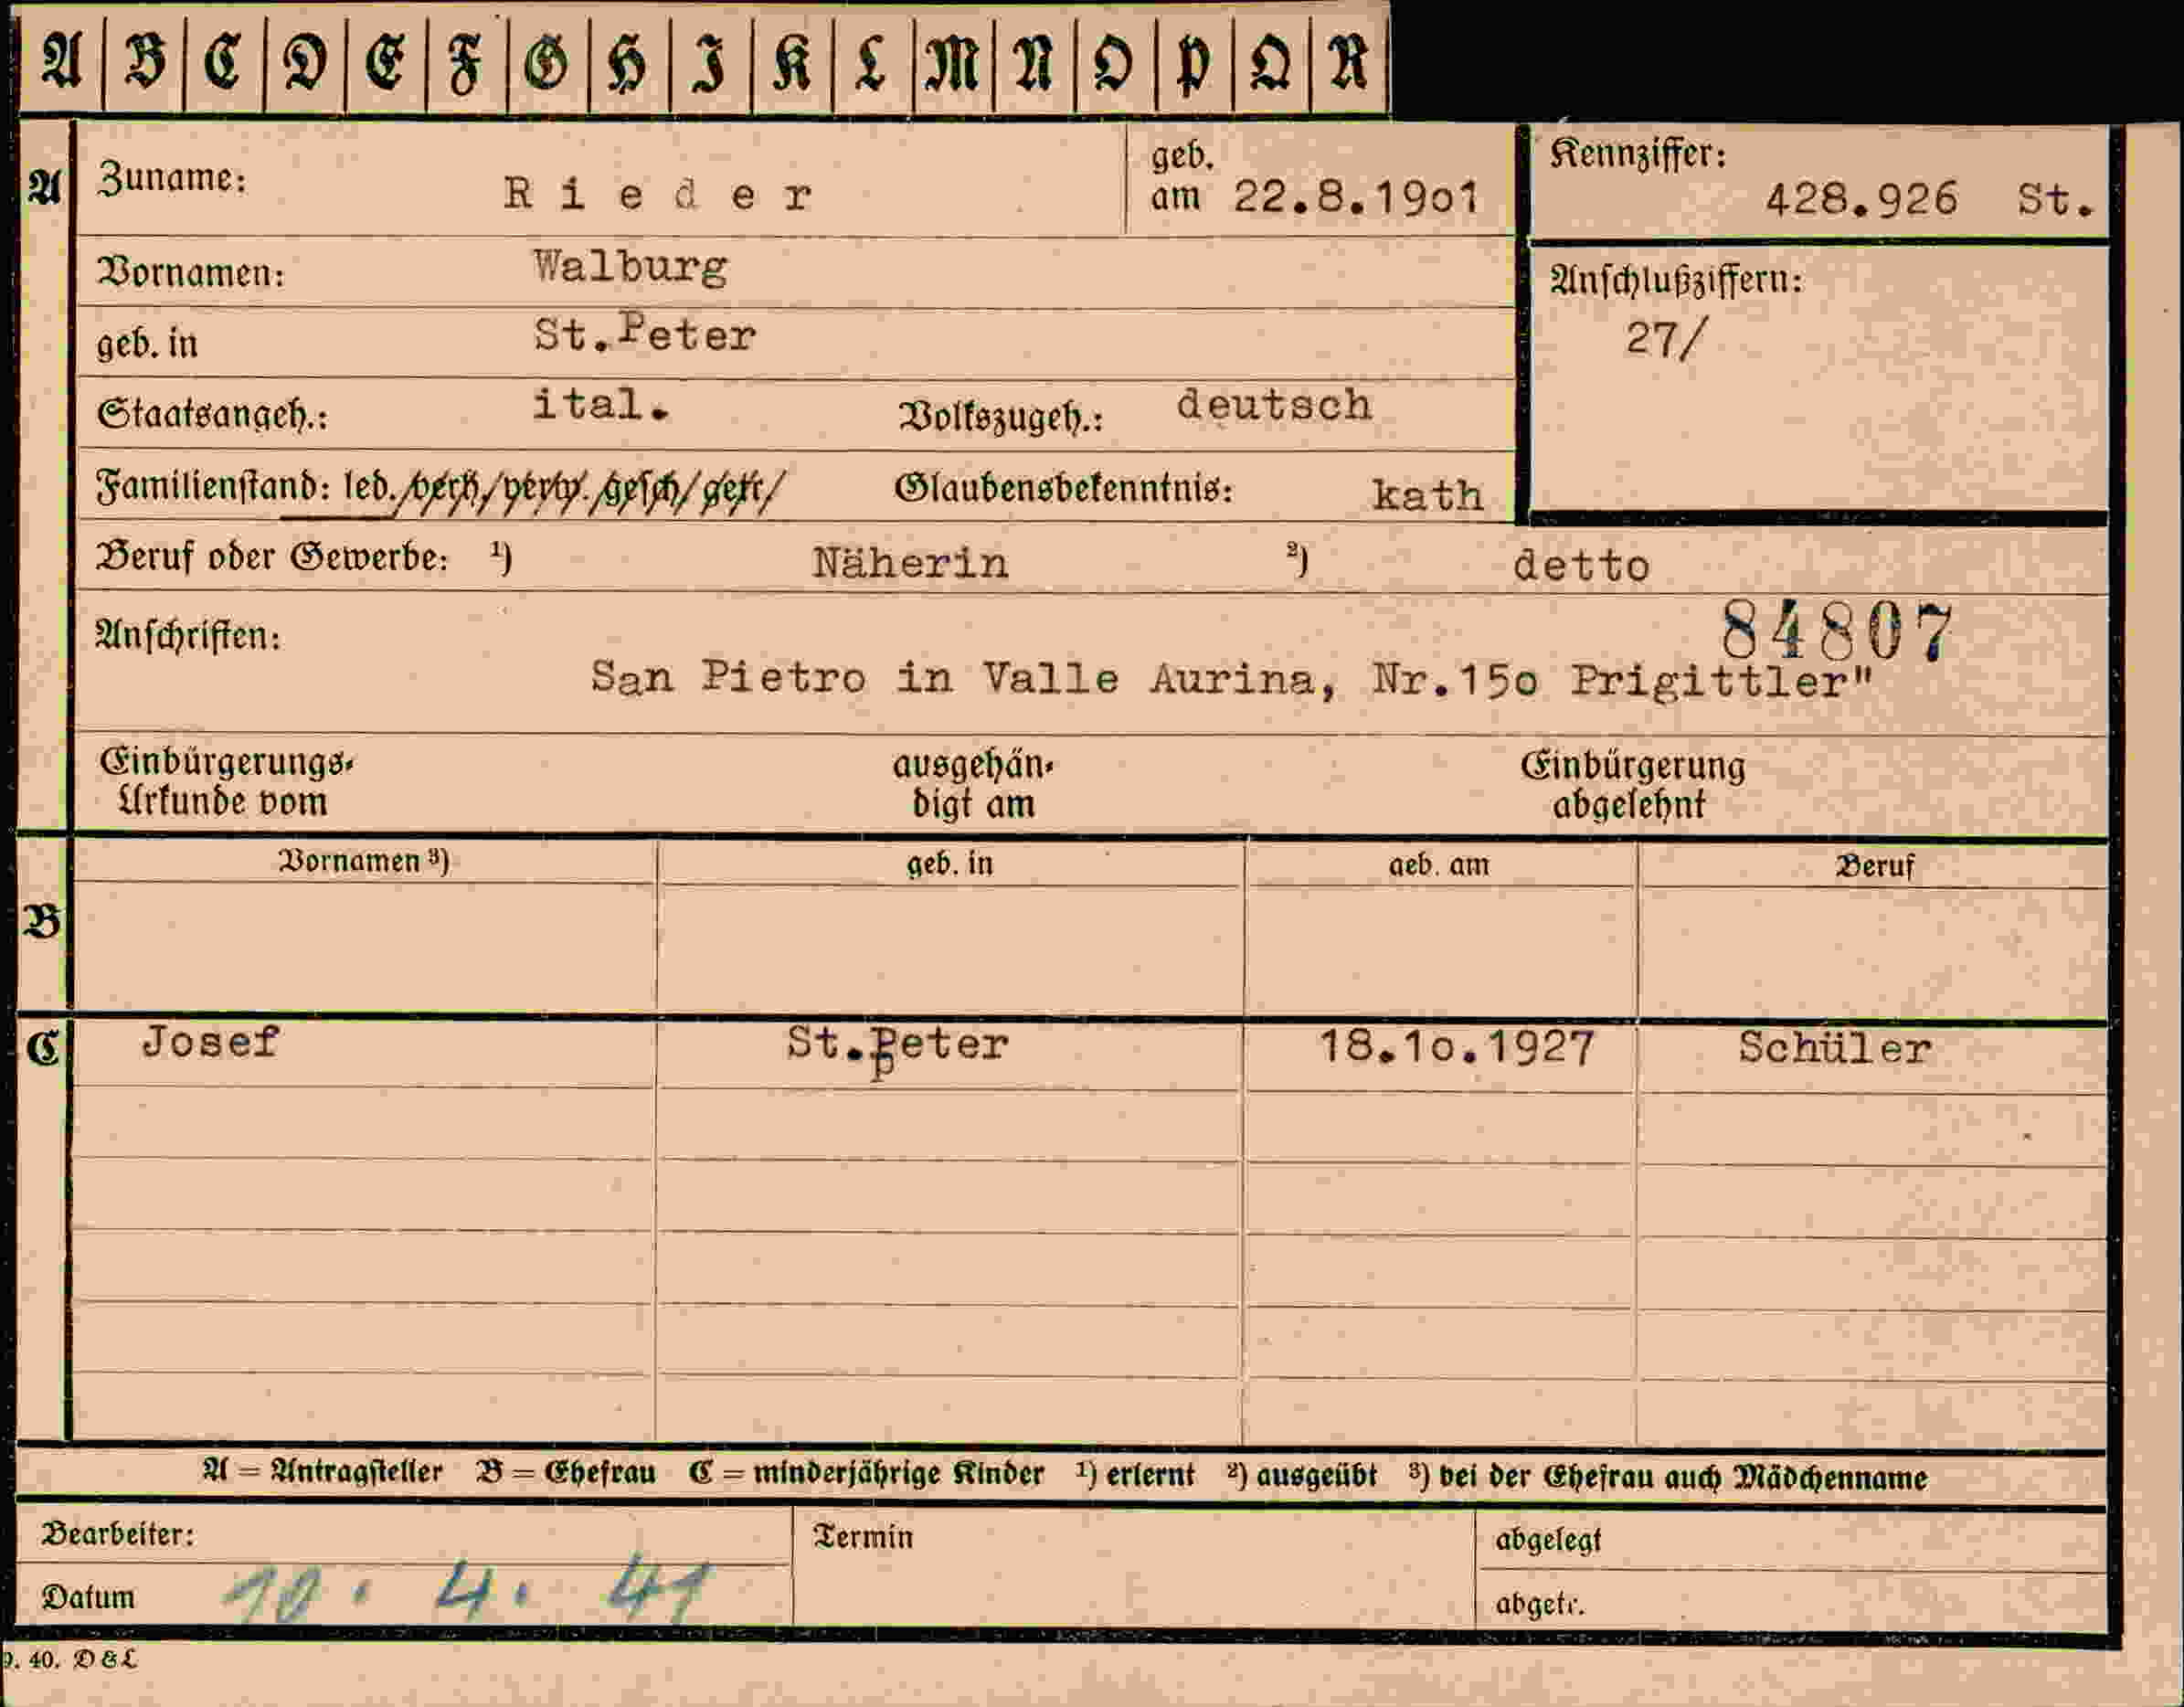 A B C D E F G H I K L M N O P Q R
A Zuname: Rieder geb. am 22.8.19o1 Kennziffer: 428.926 St.
Vornamen: Walburg Anschlußziffern:
geb. in St.Peter 27/
Staatsangeh.: ital. Volkszugeh.: deutsch
Familienstand: led./verh./verw./gesch/getr/ Glaubensbekenntnis: kath
Beruf oder Gewerbe: ¹) Näherin ²) detto
Anschriften: 84807
San Pietro in Valle Aurina, Nr.15o Prigittler"
Einbürgerungs- ausgehän- Einbürgerung
Urkunde vom digt am abgelehnt
Vornamen ³) geb. in geb. am Beruf
B
C Josef St.Peter 18.1o.1927 Schüler
A = Antragsteller B = Ehefrau C = minderjährige Kinder ¹) erlernt ²) ausgeübt ³) bei der Ehefrau auch Mädchenname
Bearbeiter: Termin abgelegt
Datum 10. 4. 41 abgetr.
9. 40. D & L